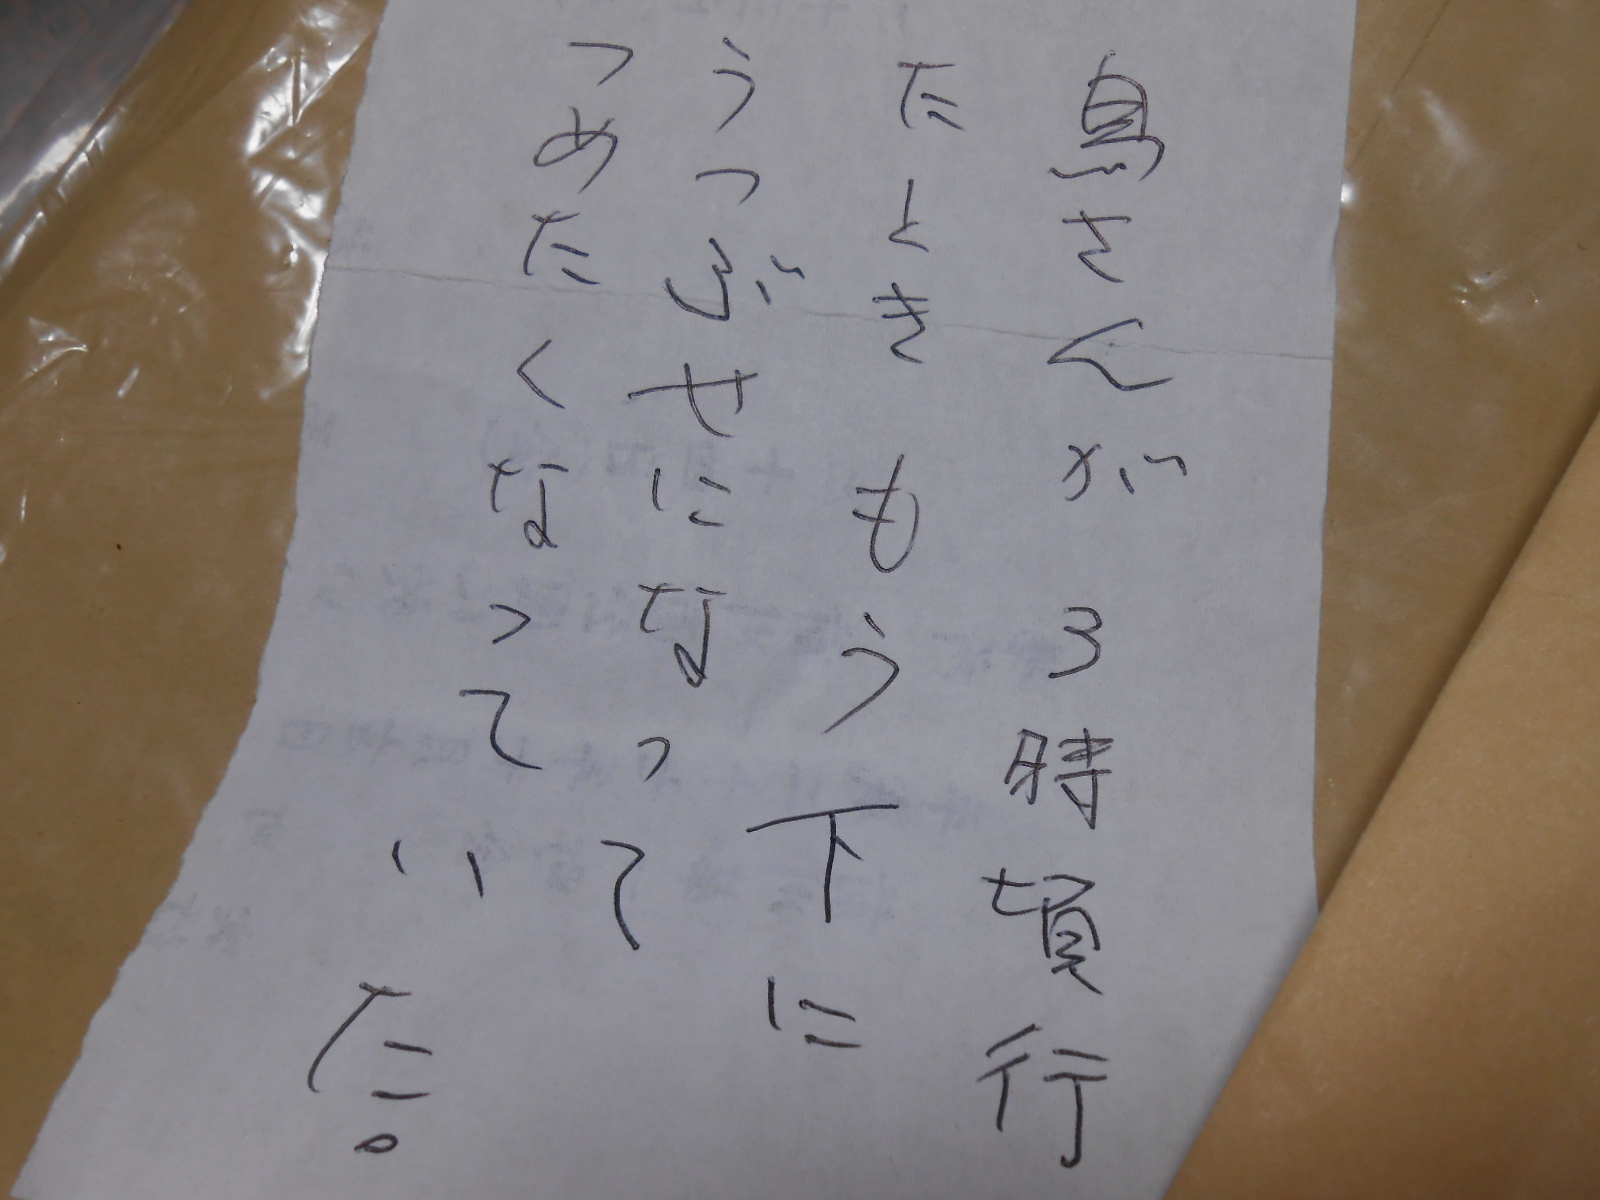 鳥さんが3時頃行
たとき もう下に
うつぶせになって
つめたくなっていた。